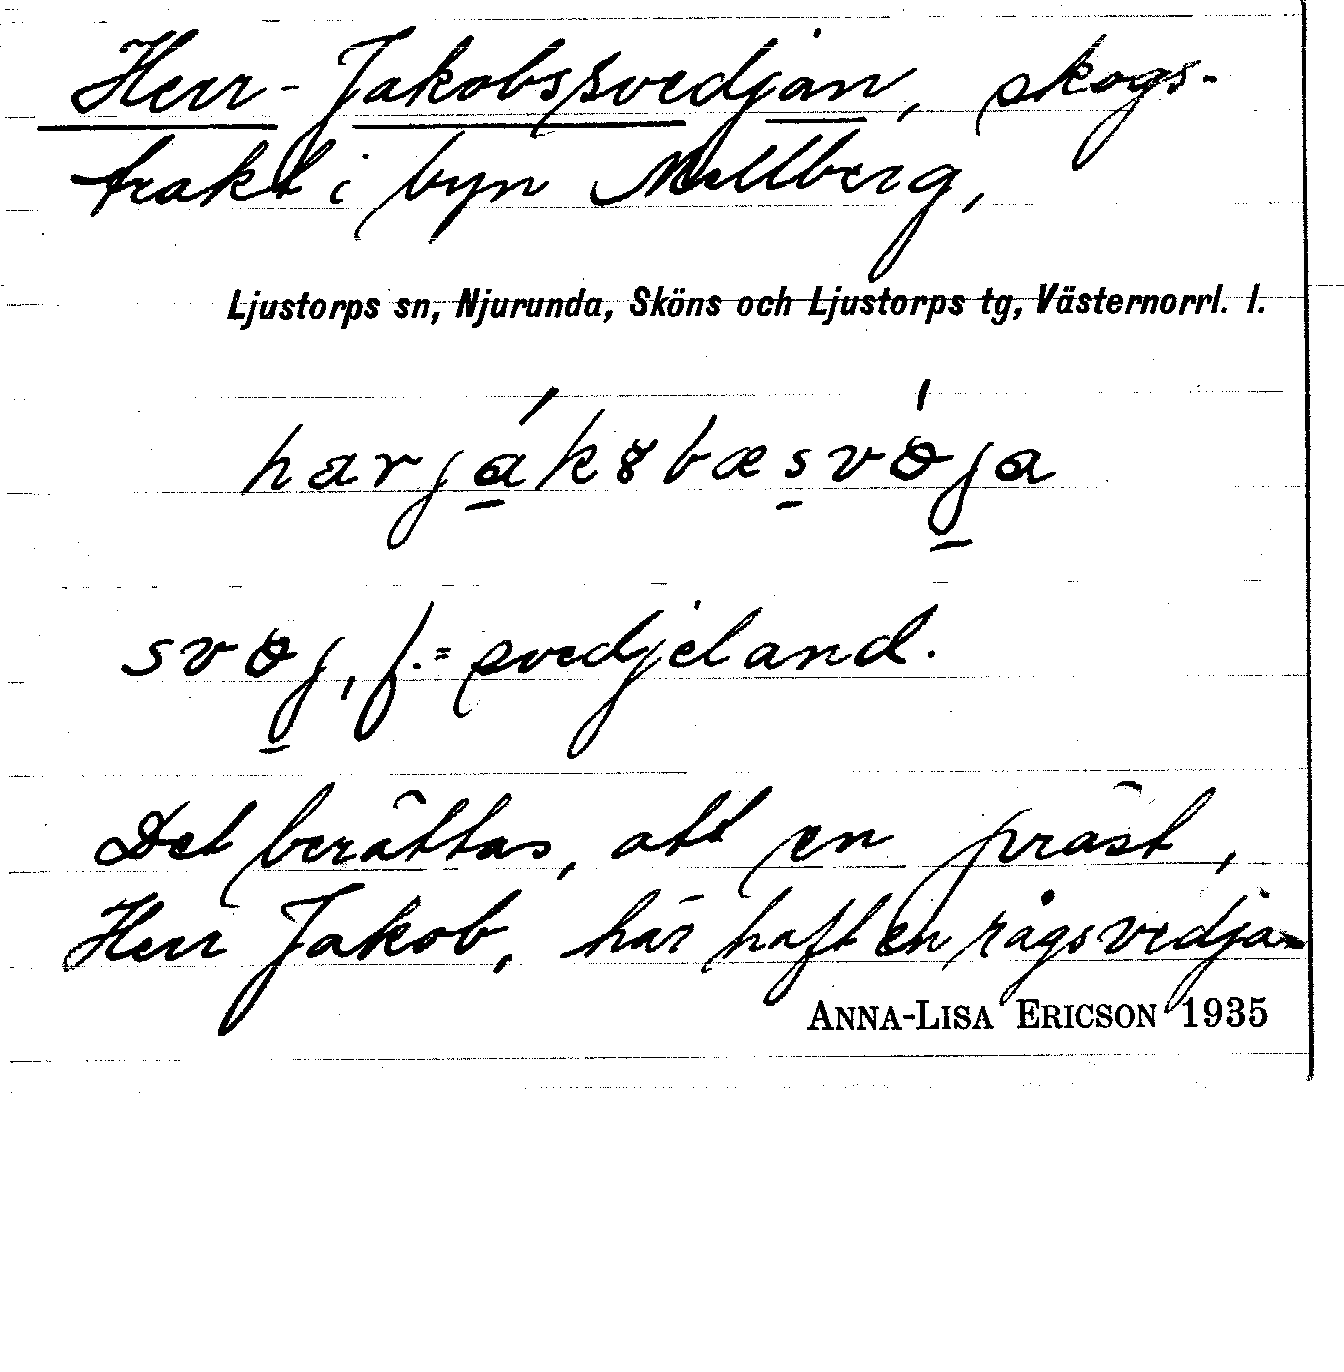 Herr-Jakobssvedjan, skogs-
trakt i byn Mellberg,
Ljustorps sn, Njurunda, Sköns och Ljustorps tg, Västernorrl. l.
harják8bæsvòja
svöj, f. = svedjeland.
Det berättas, att en präst,
Herr Jakob, här haft en rågsvedja
ANNA-LISA ERICSON 1935